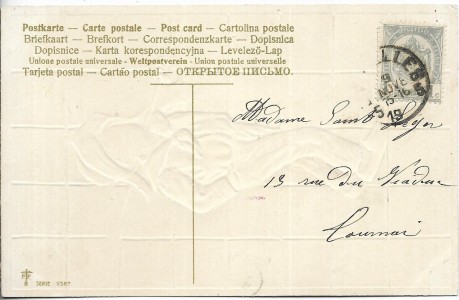 Postkarte — Carte postale — Post card — Cartolina postale
Briefkaart — Brefkort — Correspondenzkarte — Dopisnica
Dopisnice — Karta korespondencyjna — Levelező-Lap
Unione postale universale - Weltpostverein - Union postale universelle
Tarjeta postal — Cartão postal — ОТКРЫТОЕ ПИСЬМО.
Madame Saint Leger
13 rue du Viaduc
Tournai
SERIE